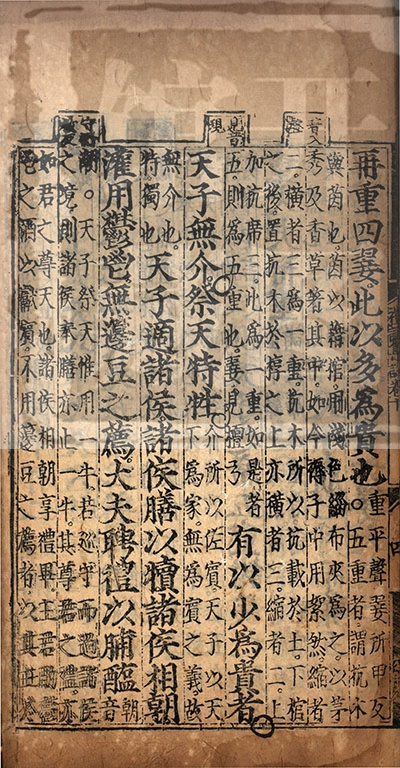 再重四翣此以多爲貴也
重平聲翣所甲反
五重者謂抗木
與茵也茵以藉棺用淺色緇布夾爲之以茅
秀及香草著其中如今褥子中用絮然縮者
二橫者三爲一重抗木所以抗載於上下棺
之後置抗木於椁之上亦橫者三縮者二上
加抗席三此爲一重如是者
五則爲五重也翣見檀弓
有以少爲貴者
天子無介祭天特牲
介所以佐賓天子以天
下爲家無爲賓之義故
無介也
特獨也
天子適諸侯諸侯膳以犢諸侯相朝
灌用鬱鬯無籩豆之薦大夫聘禮以脯醢
朝
音
潮。天子祭天惟用一牛若巡守而過諸侯
之境則諸侯奉膳亦止一牛其尊君之禮亦
如君之尊天也諸侯相朝享禮畢主君酌鬱
鬯之酒以獻賓不用籩豆之薦者以其主於